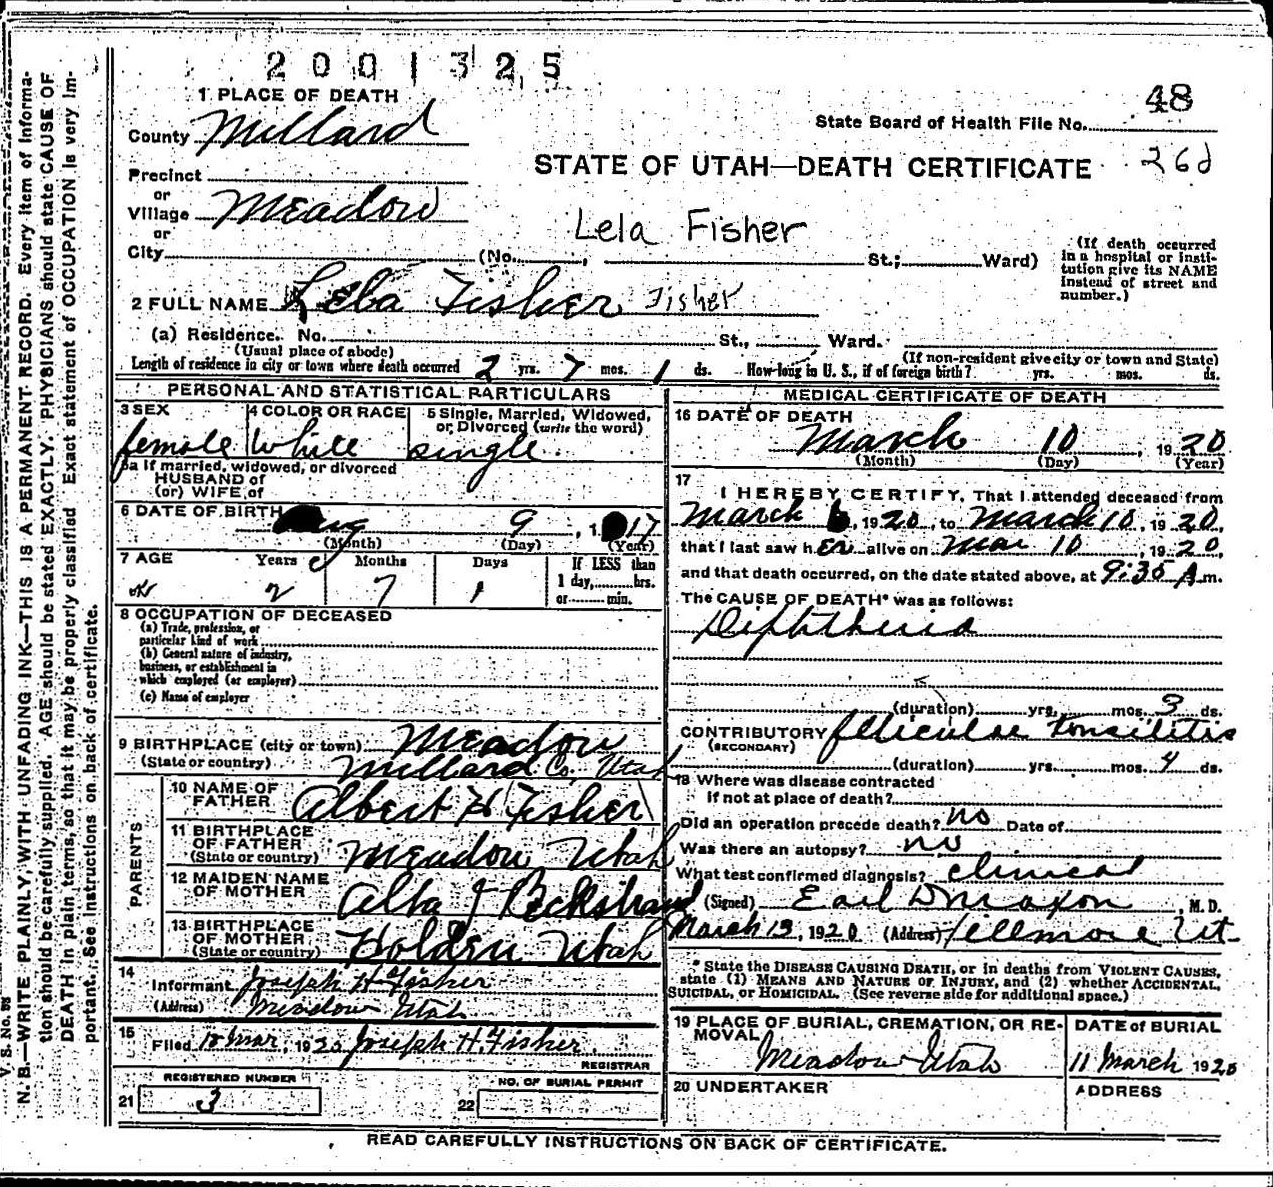 2001325
1 PLACE OF DEATH
48
County Millard
State Board of Health File No.
STATE OF UTAH—DEATH CERTIFICATE 26d
Precinct
or
Village Meadow
or
Lela Fisher
City (No. , St.; Ward)
(If death occurred in a hospital or insti-
tution give its NAME
instead of street and
number.)
2 FULL NAME Lela Fisher Fisher
(a) Residence. No. St., Ward.
(Usual place of abode) (If non-resident give city or town and State)
Length of residence in city or town where death occurred 2 yrs. 7 mos. 1 ds. How long in U. S., if of foreign birth? yrs. mos. ds.
PERSONAL AND STATISTICAL PARTICULARS
3 SEX 4 COLOR OR RACE 5 Single, Married, Widowed,
or Divorced (write the word)
female White single
5a If married, widowed, or divorced
HUSBAND of
(or) WIFE of
6 DATE OF BIRTH Aug 9, 17
(Month) (Day) (Year)
7 AGE Years Months Days If LESS than
1 day, hrs.
or min.
2 7 1
8 OCCUPATION OF DECEASED
(a) Trade, profession, or
particular kind of work
(b) General nature of industry,
business, or establishment in
which employed (or employer)
(c) Name of employer
9 BIRTHPLACE (city or town) Meadow
(State or country) Millard Co, Utah
PARENTS
10 NAME OF
FATHER Albert H Fisher
11 BIRTHPLACE
OF FATHER
(State or country) Meadow Utah
12 MAIDEN NAME
OF MOTHER Alba J Beckstrand
13 BIRTHPLACE
OF MOTHER
(State or country) Holden Utah
14
Informant Joseph H Fisher
(Address) Meadow Utah
15
Filed 10 Mar, 1920 Joseph H. Fisher
REGISTRAR
REGISTERED NUMBER
21 3
NO. OF BURIAL PERMIT
22
MEDICAL CERTIFICATE OF DEATH
16 DATE OF DEATH
March 10, 1920
(Month) (Day) (Year)
17
I HEREBY CERTIFY, That I attended deceased from
March 6, 1920, to March 10, 1920,
that I last saw her alive on Mar 10, 1920,
and that death occurred, on the date stated above, at 9:35 A m.
The CAUSE OF DEATH* was as follows:
Diphtheria
(duration) yrs. mos. 3 ds.
CONTRIBUTORY follicular tonsilitis
(SECONDARY)
(duration) yrs. mos. 4 ds.
18 Where was disease contracted
if not at place of death?
Did an operation precede death? no Date of
Was there an autopsy? no
What test confirmed diagnosis? clinical
(Signed) Earl D Maxon, M.D.
March 12, 1920 (Address) Fillmore Ut
* State the DISEASE CAUSING DEATH, or in deaths from VIOLENT CAUSES,
state (1) MEANS AND NATURE OF INJURY, and (2) whether ACCIDENTAL,
SUICIDAL, or HOMICIDAL. (See reverse side for additional space.)
19 PLACE OF BURIAL, CREMATION, OR RE-
MOVAL
Meadow Utah
DATE of BURIAL
11 March 1920
20 UNDERTAKER
ADDRESS
READ CAREFULLY INSTRUCTIONS ON BACK OF CERTIFICATE.
V. S. No. 
N. B.—WRITE PLAINLY, WITH UNFADING INK—THIS IS A PERMANENT RECORD. Every item of informa-
tion should be carefully supplied. AGE should be stated EXACTLY. PHYSICIANS should state CAUSE OF
DEATH in plain terms, so that it may be properly classified. Exact statement of OCCUPATION is very im-
portant. See instructions on back of certificate.